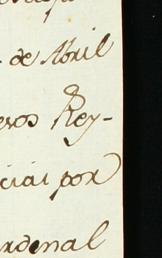 de Abril
esos Rey-
ciai por
ardenal